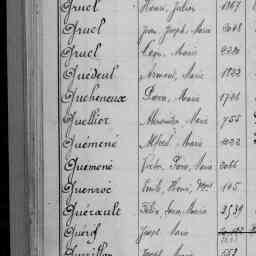 Gruel Henri, Julien 1867
Gruel Jean, Joseph, Marie 2048
Gruel Léon, Marie
Guedeul Armand, Marie 1822
Gueheneux Pierre, Marie 1746
Guellier Alexandre, Marie 755
Guéméné Alfred, Marie 1022
Guémené Victor, Pierre, Marie 2066
Guenroc Emile, Henri, 105
Guérault Félix, Marie 2539
Guéry Joseph, Marie
Joseph, Marie 553